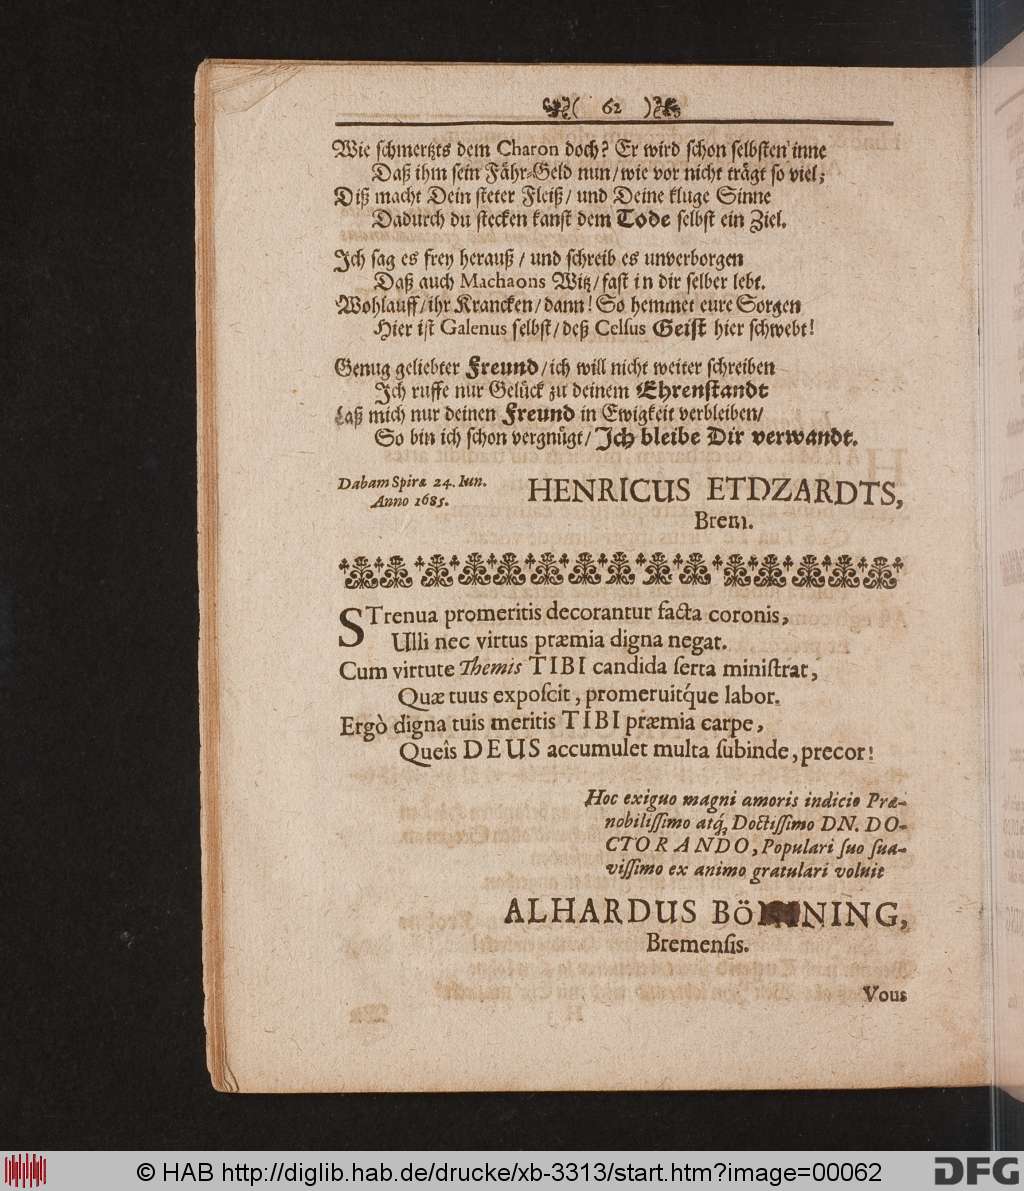 ( 62 )
Wie schmertzts dem Charon doch? Er wird schon selbsten inne
Daß ihm sein Fähr-Geld nun/ wie vor nicht trägt so viel;
Diß macht Dein steter Fleiß/ und Deine kluge Sinne
Dadurch du stecken kanst dem Tode selbst ein Ziel.
Ich sag es frey herauß / und schreib es unverborgen
Daß auch Machaons Witz/ fast in dir selber lebt.
Wohlauff/ ihr Krancken/ dann! So hemmet eure Sorgen
Hier ist Galenus selbst/ deß Celsus Geist hier schwebt!
Genug geliebter Freund/ ich will nicht weiter schreiben
Ich ruffe nur Gelück zu deinem Ehrenstandt
Laß mich nur deinen Freund in Ewigkeit verbleiben/
So bin ich schon vergnügt/ Ich bleibe Dir verwandt.
Dabam Spiræ 24. Iun.
Anno 1685.
HENRICUS ETDZARDTS,
Brem.
STrenua promeritis decorantur facta coronis,
Ulli nec virtus præmia digna negat.
Cum virtute Themis TIBI candida ſerta miniſtrat,
Quæ tuus expoſcit, promeruitq́ue labor.
Ergò digna tuis meritis TIBI præmia carpe,
Queîs DEUS accumulet multa ſubinde, precor!
Hoc exiguo magni amoris indicio Præ-
nobiliſſimo atq́; Doctiſſimo DN. DO-
CTORANDO, Populari ſuo ſua-
viſſimo ex animo gratulari voluit
ALHARDUS
Bremenſis.
Vous
© HAB http://diglib.hab.de/drucke/xb-3313/start.htm?image=00062
DFG